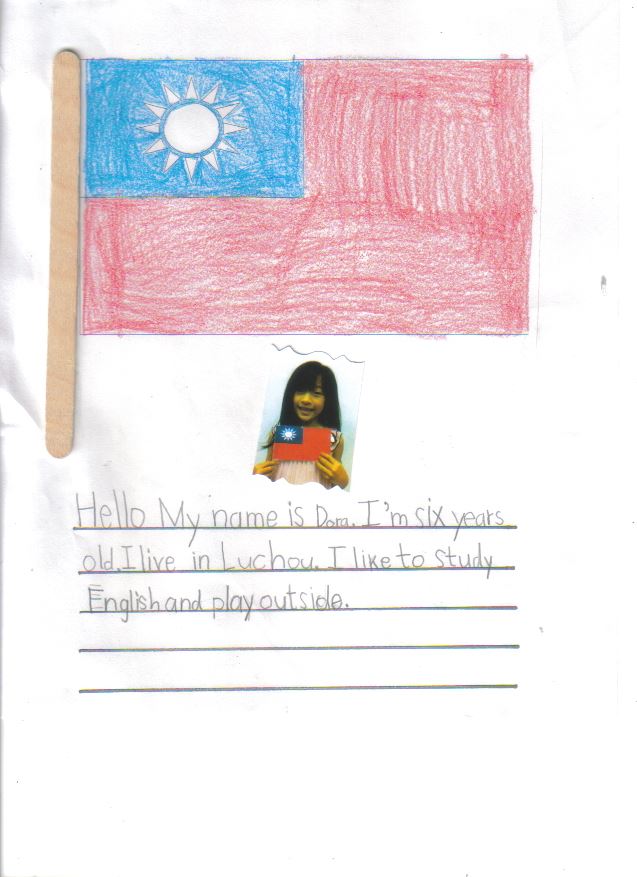 Hello My name is Dora. I'm six years
old. I live in Luchou. I like to study
English and play outside.